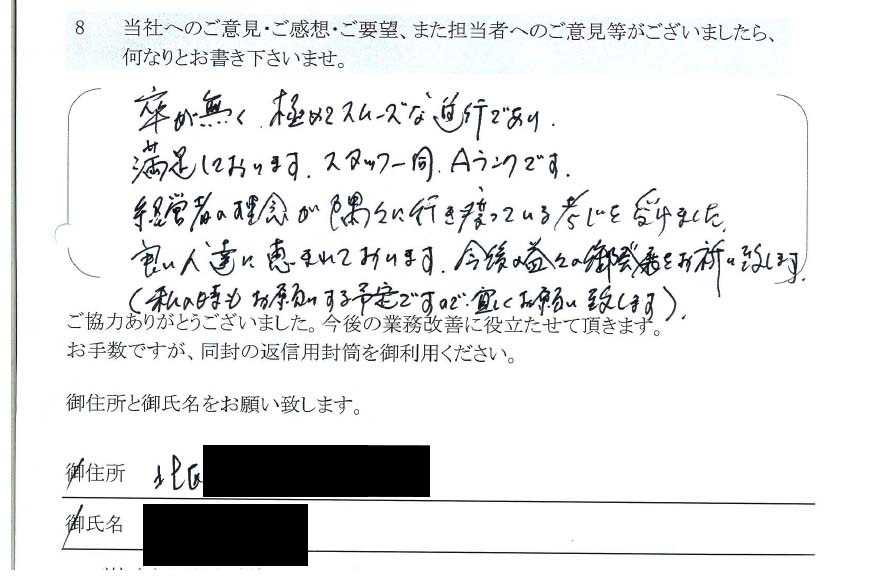 8 当社へのご意見・ご感想・ご要望、また担当者へのご意見等がございましたら、
何なりとお書き下さいませ。
卒が無く、極めてスムーズな進行であり、
満足しております。スタッフ一同、Aランクです。
経営者の理念が隅々に行き渡っている感じを受けました。
良い人達に恵まれております。今後の益々の御発展をお祈り致します。
(私の時もお願いする予定ですので宜しくお願い致します)。
ご協力ありがとうございました。今後の業務改善に役立たせて頂きます。
お手数ですが、同封の返信用封筒を御利用ください。
御住所と御氏名をお願い致します。
御住所
御氏名